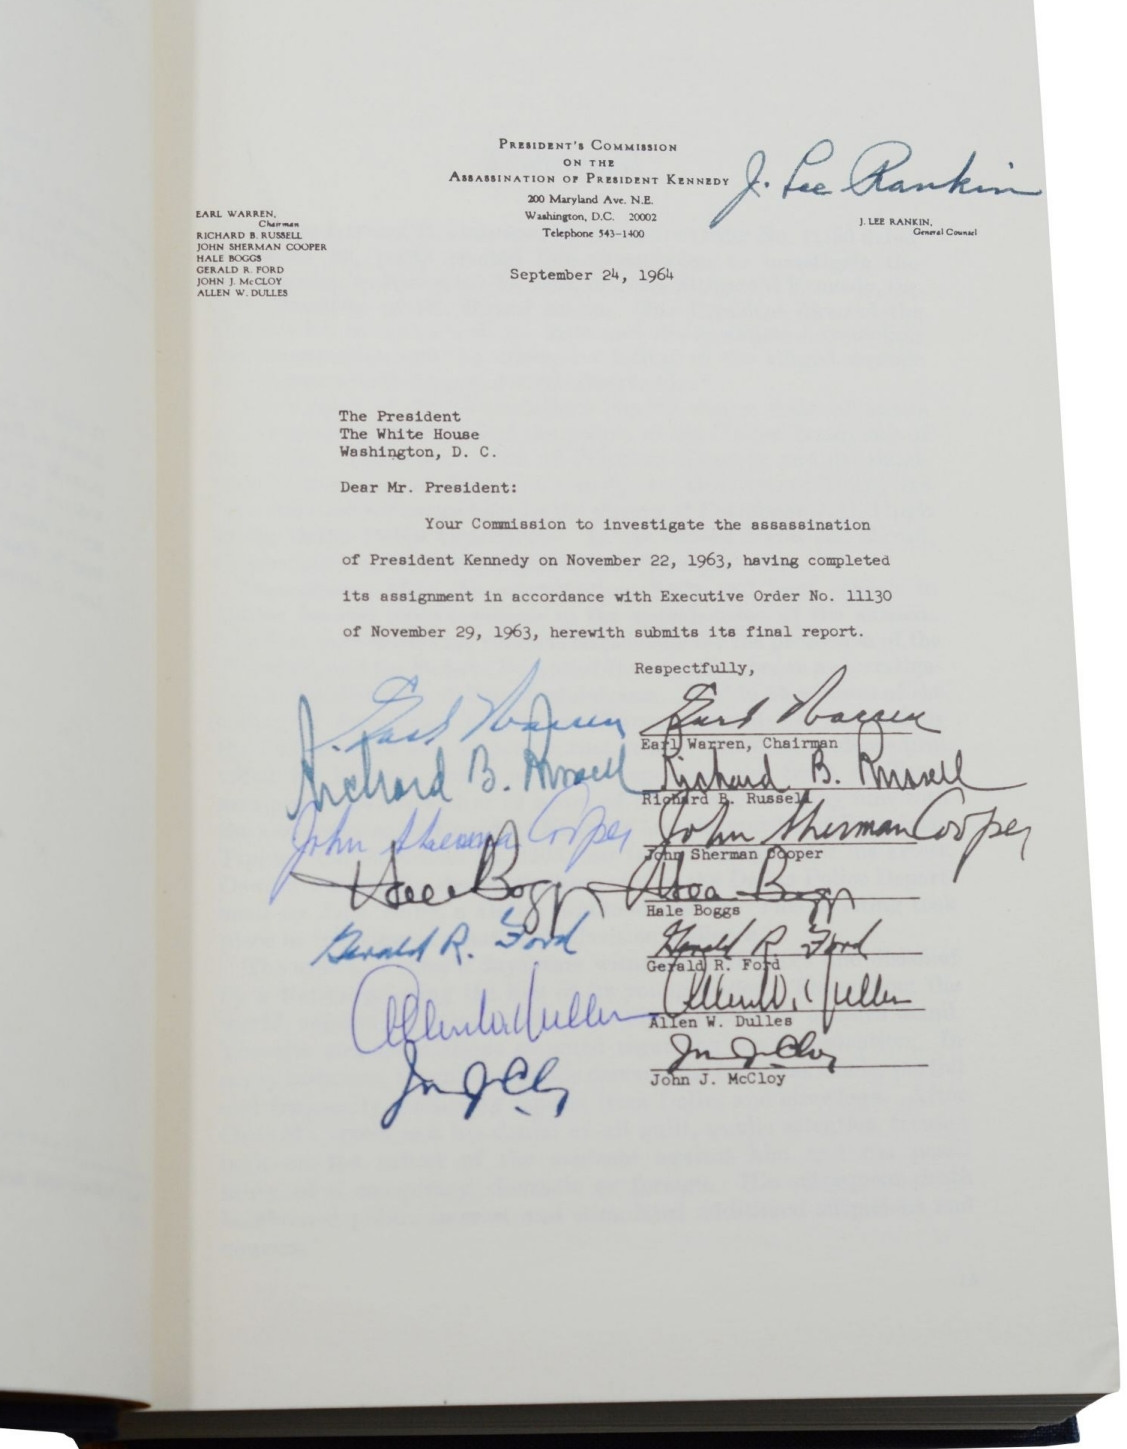 PRESIDENT'S COMMISSION
ON THE
ASSASSINATION OF PRESIDENT KENNEDY
200 Maryland Ave. N.E.
Washington, D.C. 20002
Telephone 543-1400
J. Lee Rankin
J. LEE RANKIN,
General Counsel
EARL WARREN,
Chairman
RICHARD B. RUSSELL
JOHN SHERMAN COOPER
HALE BOGGS
GERALD R. FORD
JOHN J. McCLOY
ALLEN W. DULLES
September 24, 1964
The President
The White House
Washington, D. C.
Dear Mr. President:
Your Commission to investigate the assassination
of President Kennedy on November 22, 1963, having completed
its assignment in accordance with Executive Order No. 11130
of November 29, 1963, herewith submits its final report.
Respectfully,
Earl Warren Earl Warren
Earl Warren, Chairman
Richard B. Russell Richard B. Russell
Richard B. Russell
John Sherman Cooper John Sherman Cooper
John Sherman Cooper
Hale Boggs Hale Boggs
Hale Boggs
Gerald R. Ford Gerald R. Ford
Gerald R. Ford
Allen W. Dulles Allen W. Dulles
Allen W. Dulles
Jn J McCloy Jn J McCloy
John J. McCloy